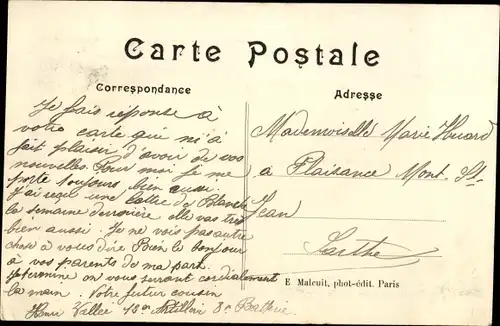 Carte Postale
Correspondance
Adresse
Je fais réponse à
votre carte qui m'a
fait plaisir d'avoir de vos
nouvelles. Pour moi je me
porte toujours bien aussi.
J'ai reçu une lettre de Blanche
la semaine dernière elle vas très
bien aussi. Je ne vois pas autre
chose à vous dire Bien le bonjour
à vos parents de ma part.
Je termine en vous serrant cordialement
la main. Votre futur cousin
Henri Vallée 13e Artillerie 8e Batterie
Mademoiselle Marie Huard
a Plaisance Mont. St.
Jean
Sarthe
E Malcuit, phot-édit. Paris